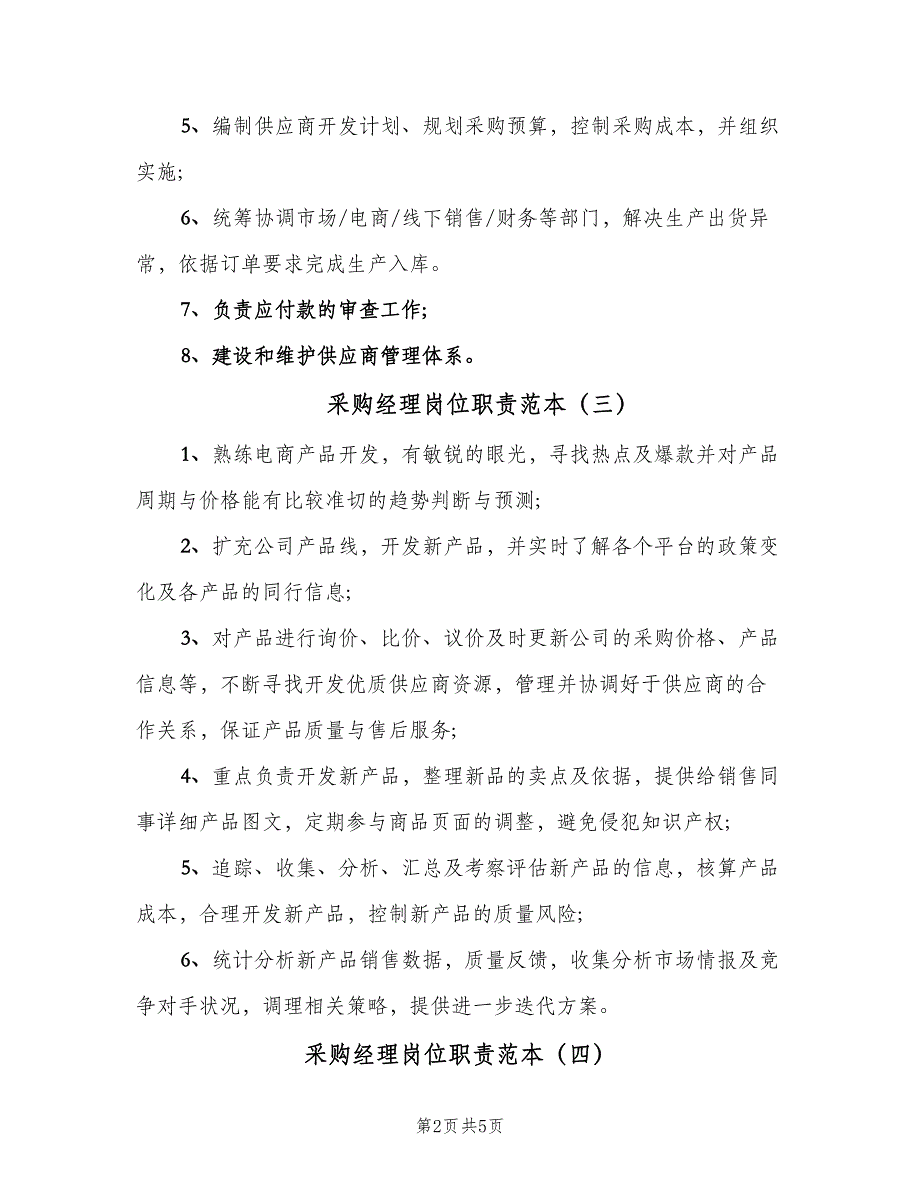 5、编制供应商开发计划、规划采购预算，控制采购成本，并组织
实施;
6、统筹协调市场/电商/线下销售/财务等部门，解决生产出货异
常，依据订单要求完成生产入库。
7、负责应付款的审查工作;
8、建设和维护供应商管理体系。
采购经理岗位职责范本（三）
1、熟练电商产品开发，有敏锐的眼光，寻找热点及爆款并对产品
周期与价格能有比较准切的趋势判断与预测;
2、扩充公司产品线，开发新产品，并实时了解各个平台的政策变
化及各产品的同行信息;
3、对产品进行询价、比价、议价及时更新公司的采购价格、产品
信息等，不断寻找开发优质供应商资源，管理并协调好于供应商的合
作关系，保证产品质量与售后服务;
4、重点负责开发新产品，整理新品的卖点及依据，提供给销售同
事详细产品图文，定期参与商品页面的调整，避免侵犯知识产权;
5、追踪、收集、分析、汇总及考察评估新产品的信息，核算产品
成本，合理开发新产品，控制新产品的质量风险;
6、统计分析新产品销售数据，质量反馈，收集分析市场情报及竞
争对手状况，调理相关策略，提供进一步迭代方案。
采购经理岗位职责范本（四）
第2页共5页